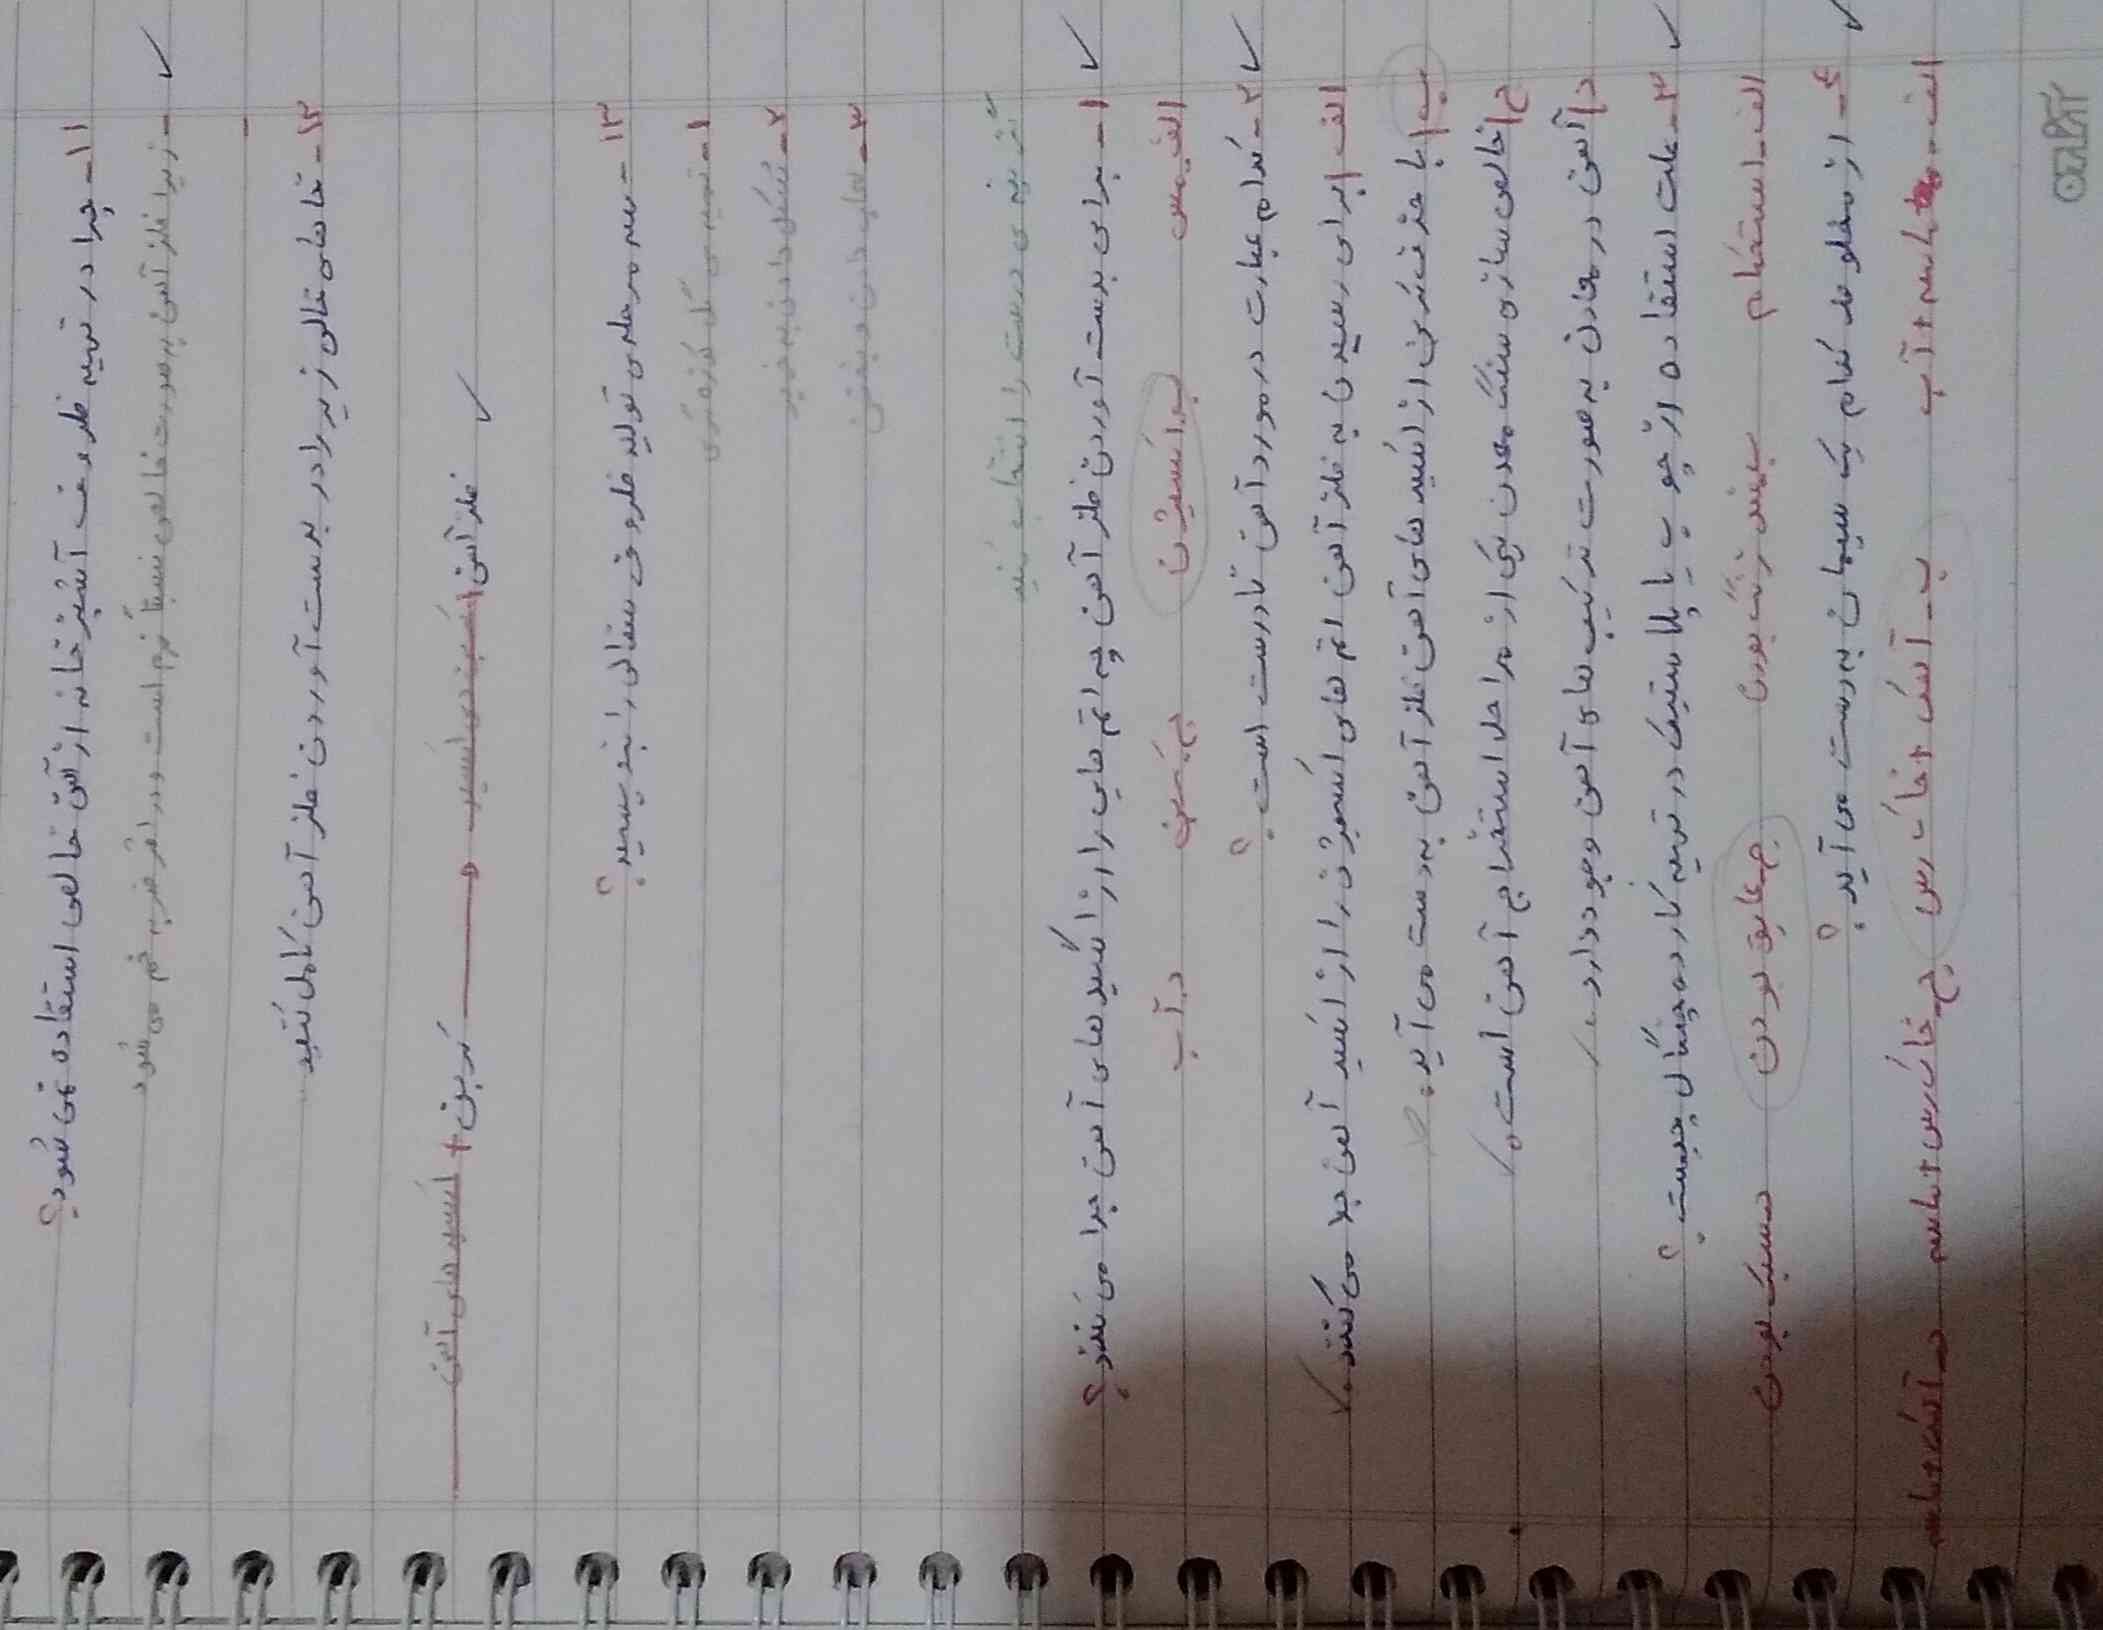 ۱۱- چرا در تهیه ظروف آشپزخانه از آهن خالص استفاده نمی شود؟
- زیرا فلز آهن به صورت خالص نسبتاً نرم است و در اثر ضربه خم می شود
۱۲- تقاهای خالی زیر را در بدست آوردن فلز آهن کامل کنید
اکسید های آهن + کربن → کربن دی اکسید + فلز آهن
۱۳- سه مرحله ی تولید ظروف سفالی را بنویسید؟
۱- تهیه ی گل کوزه گری
۲- شکل دادن به خمیر
۳- لعاب دادن و پختن
گزینه ی درست را انتخاب کنید
۱- برای بدست آوردن فلز آهن چه اتم هایی را از اکسید های آهن جدا می کنند؟
الف- مس ب- اکسیژن ج- کربن د- آب
۲- کدام عبارت در مورد آهن نادرست است؟
الف) برای رسیدن به فلز آهن اتم های اکسیژن را از اکسید آهن جدا می کنند.
ب) با حذف کربن از اکسید های آهن فلز آهن به دست می آید.
ج) خالص سازی سنگ معدن یکی از مراحل استخراج آهن است.
د) آهن در معادن به صورت ترکیب های آهن وجود دارد.
۳- علت استفاده از چوب یا پلاستیک در تهیه کارد و چنگال چیست؟
الف- استحکام ب- ضد زنگ بودن ج- عایق بودن د- سبک بودن
۴- از مخلوط کدام یک سیمان به دست می آید؟
الف- ماسه + آب ب- آهک + خاک رس ج- خاک رس + ماسه د- آهک + ماسه